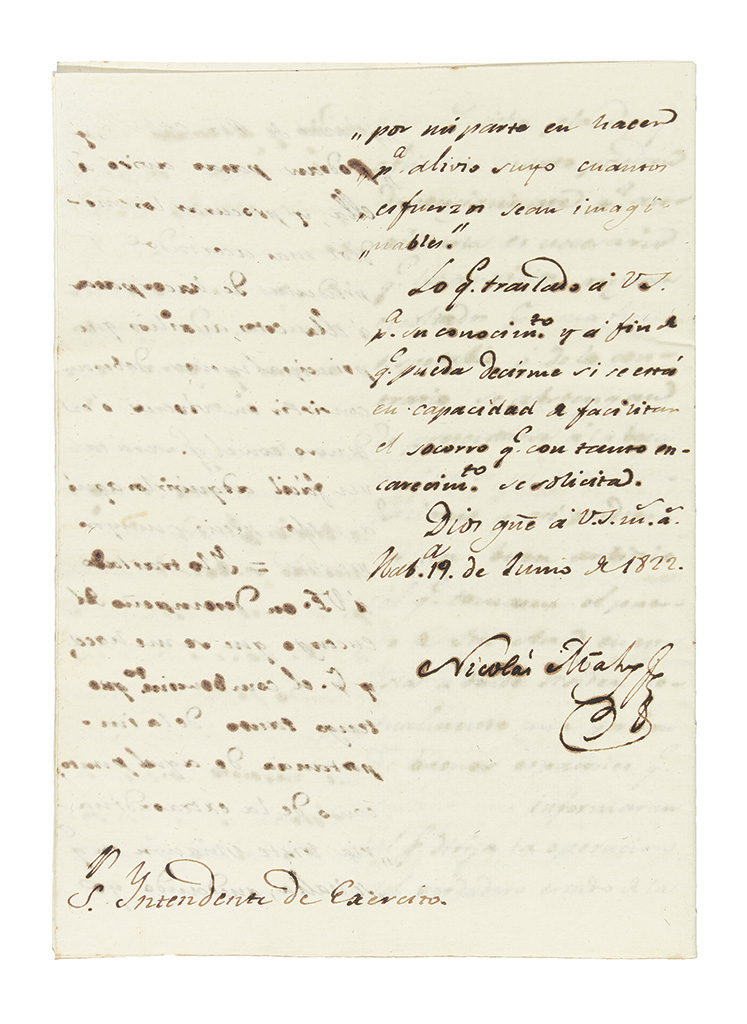 "por mi parte en hacer
"p.ª alivio suyo cuantos
"esfuerzos sean imagi-
"nables."
Lo q.e traslado á V.S.
p.ª su conocim.to y á fin de
q.e pueda decirme si se está
en capacidad de facilitar
el socorro q.e con tanto en-
carecim.to se solicita.
Dios gũe á V.S. m.s a.s
Hab.ª 19. de Junio de 1822.
Nicolás Mahy
S.r Yntendente de Exercito.